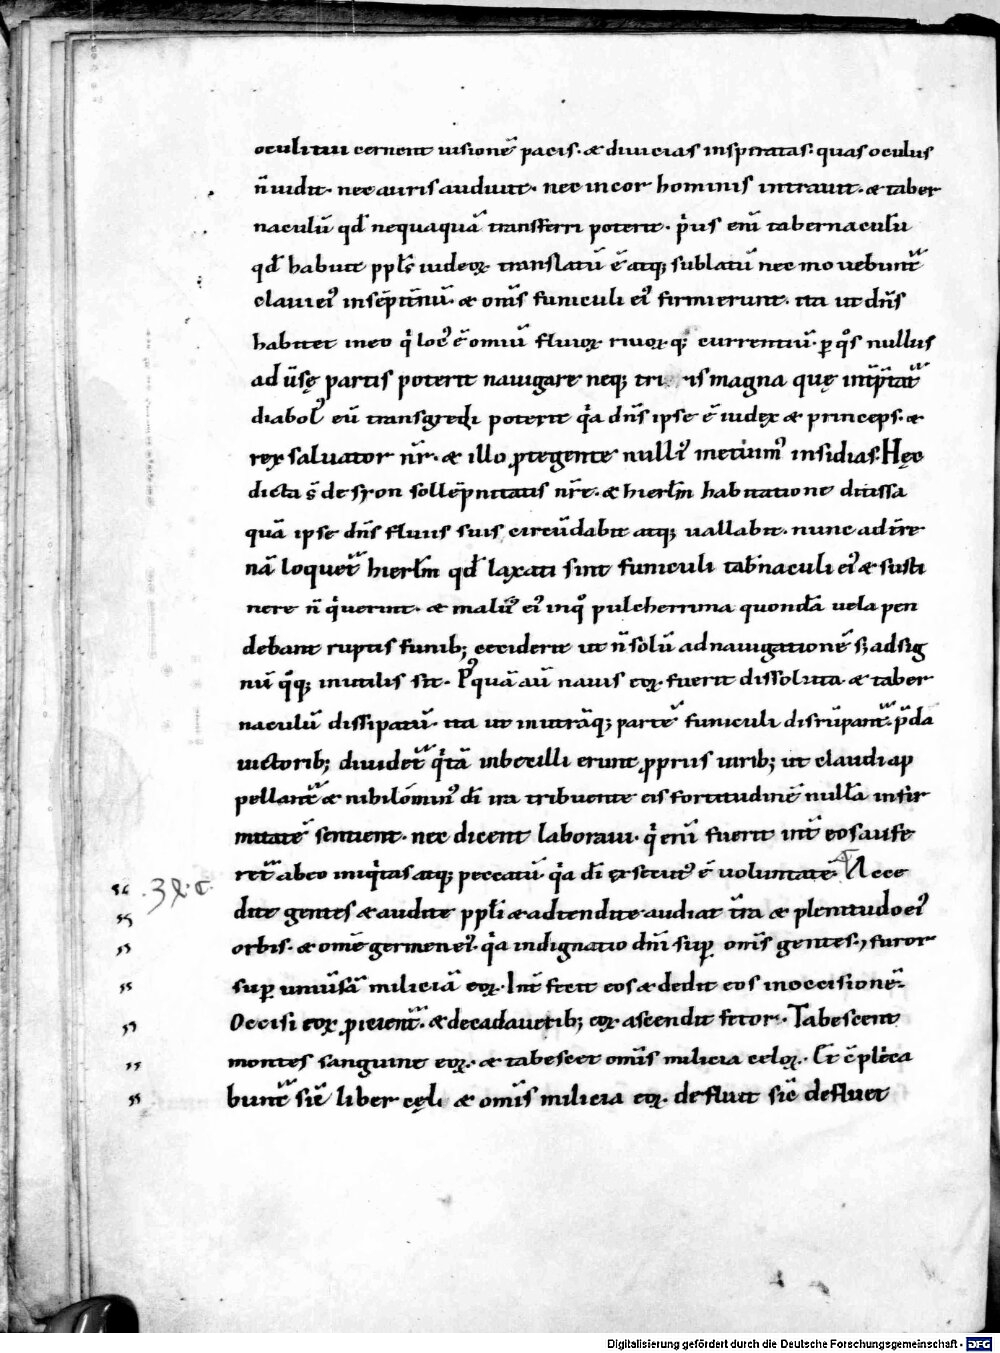 oculi tui cernent uisionē pacis· & diuicias insperatas· quas oculus
n̄ uidit· nec auris audiuit· nec in cor hominis intrauit· & taber
naculū qđ nequaquā transferri poterit· p'us enī tabernaculū
qđ habuit ppl's iudeoꝝ translatū ē atq; sublatū nec mouebunt̄
claui ei' in sēpit̄nū· & om̄s funiculi ei' firmi erunt· ita ut dn̄s
habitet in eo q' loc' ē omiū fluuioꝝ riuoꝝ q; currentiū· p q°s nullus
ad ūsę partis poterit nauigare neq; magna quę int̄p̄tat̄
diabol' eū transgredi poterit q'a dn̄s ipse ē iudęx & princeps· &
rex saluator nr̄· & illo ꝓtegente null' metuim' insidias· Hęc
dicta s̄ de syon sollēpnitatis nr̄e· & hierl̄m habitatione diuissa
quā ipse dn̄s fluuiis suis circūdabit atq; uallabit· nunc ad t̄re
nā loquet̄ hierl̄m qđ laxati sint funiculi tab̄naculi ei' & susti
nere n̄ q'uerint· & malū ei' in q° pulcherrima quondā uela pen
debant ruptis funib; ceciderit ut n̄ solū ad nauigationē s; ad sig
nū q°q; inutilis sit· P'quā aū nauis eoꝝ fuerit dissoluta· & taber
naculū dissipatū· ita ut in utrāq; partē funiculi disrūpant̄· p̄da
uictorib; diuidet̄ q'tā inbecilli erunt ꝓpriis uirib; ut claudi ap
pellant̄ & nihilomin' dī ira tribuente eis fortitudinē nullā infir
mitatē sentient· nec dicent laboraui· q' enī fuerit int̄ eos aufe
ret̄ ab eo iniq'tas atq; peccatū· q'a dī secut' ē uoluntatē· Acce
.3X.c. dite gentes & audite ppl'i & adtendite audiat t̄ra & plenitudo ei'
orbis· & om̄e germen ei'· q'a indignatio dn̄i sup om̄s gentes· ⁊ furor
sup uniūsā miliciā eoꝝ· Int̄fecit eos & dedit eos in occisionē·
Occisi eoꝝ ꝓicient̄· & de cadauerib; eoꝝ ascendit fetor· Tabescent
montes sanguine eoꝝ· & tabescet om̄is milicia celoꝝ· Et cōplica
bunt̄ sic̄ liber cęli & om̄is milicia eoꝝ defluit sic̄ defluet
Digitalisierung gefördert durch die Deutsche Forschungsgemeinschaft - DFG